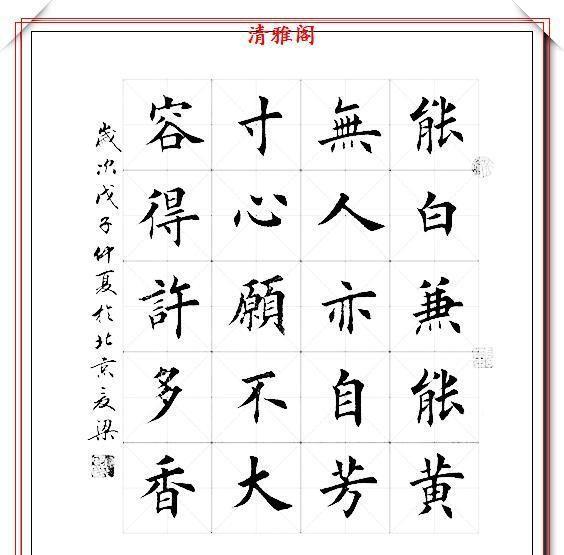 清雅阁
能白兼能黄
無人亦自芳
寸心願不大
容得許多香
歲次戊子仲夏於北京友梁